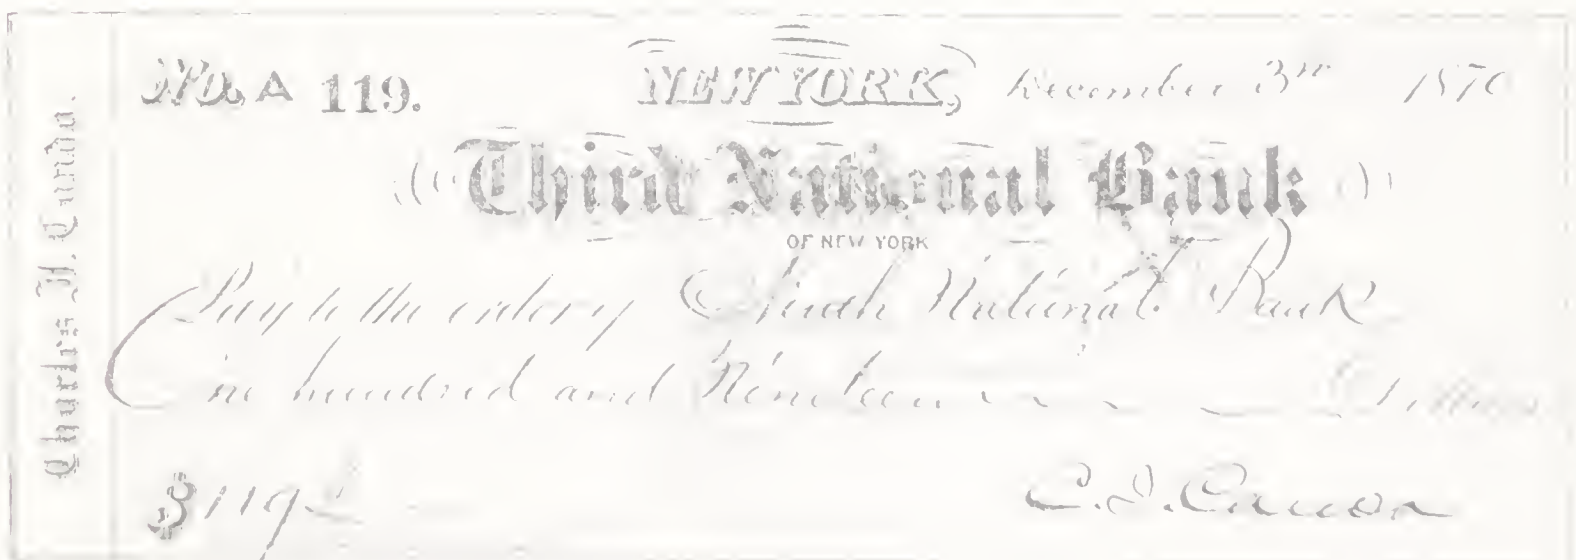 Charles J. Canda.
No. A 119.
NEW YORK, December 3rd 1870
Third National Bank
OF NEW YORK
Pay to the order of Ninth National Bank
One hundred and Nineteen Dollars
$119.
C. J. Canda